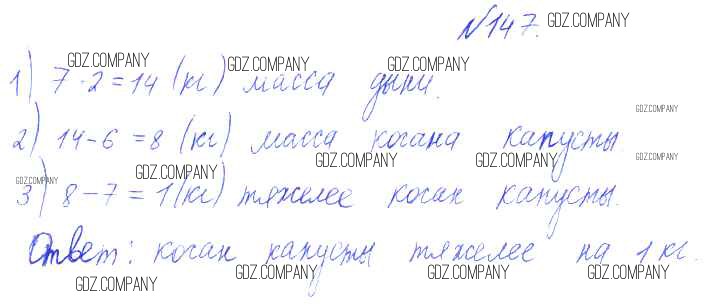 №147. GDZ.COMPANY
GDZ.COMPANY GDZ.COMPANY GDZ.COMPANY
1) 7·2=14 (кг) масса дыни.
GDZ.COMPANY
2) 14-6=8 (кг) масса кочана капусты.
GDZ.COMPANY GDZ.COMPANY GDZ.COMPANY GDZ.COMPANY
GDZ.COMPANY
3) 8-7=1(кг) тяжелее кочан капусты.
Ответ: кочан капусты тяжелее на 1 кг.
GDZ.COMPANY GDZ.COMPANY GDZ.COMPANY GDZ.COMPANY